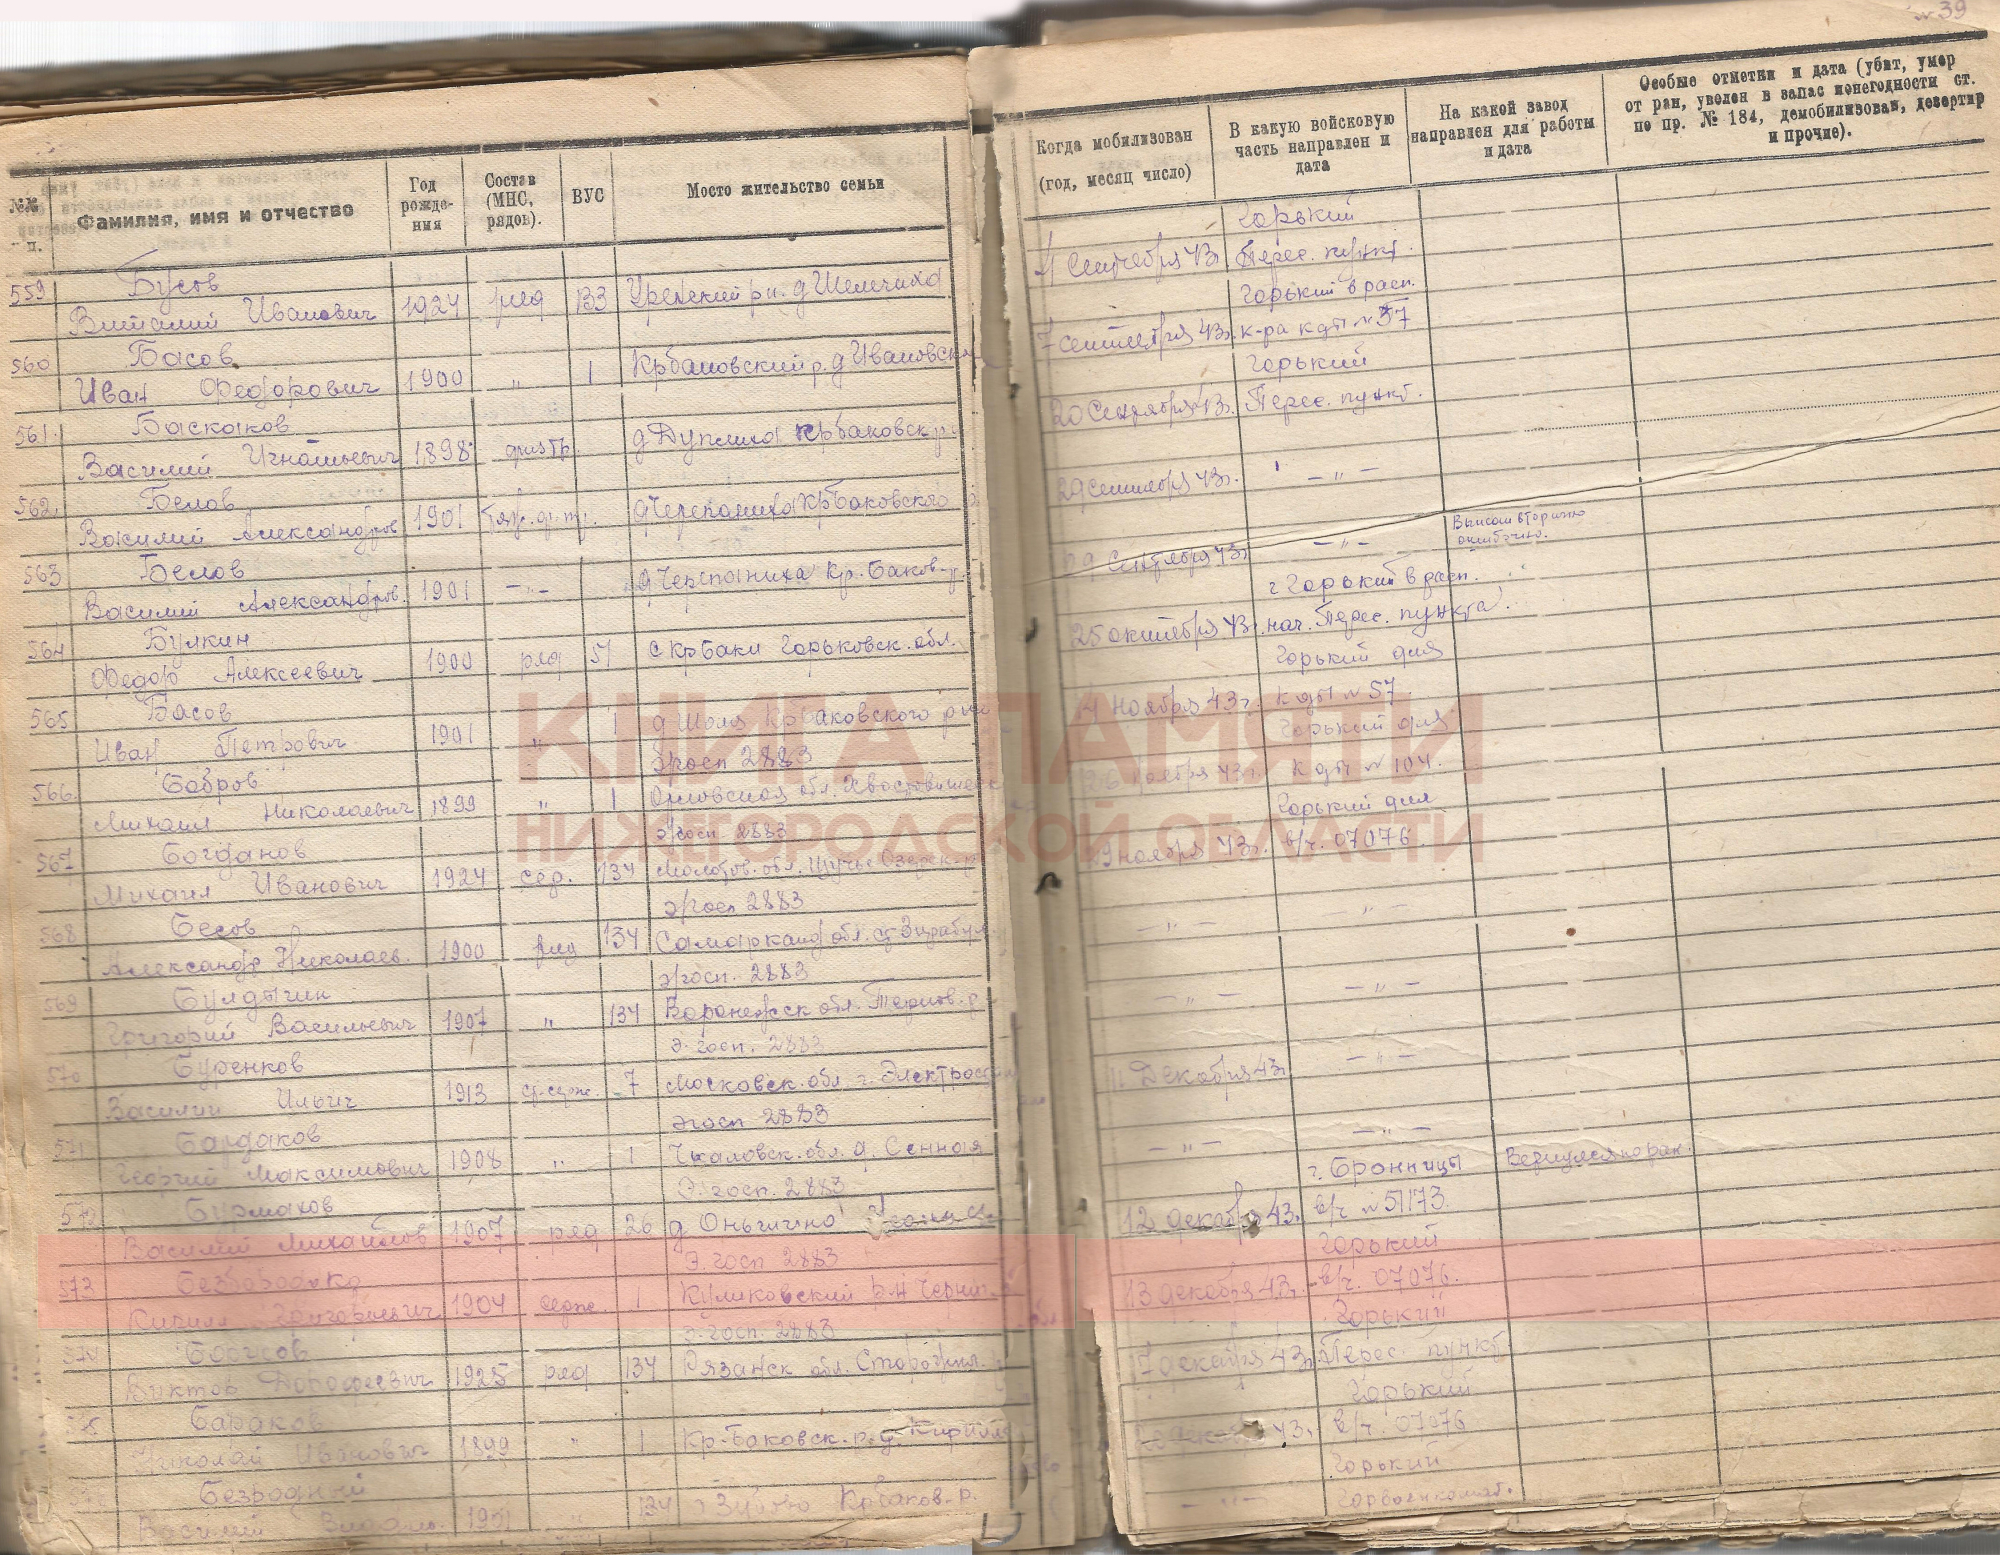 №№ п.
Фамилия, имя и отчество
Год рожде-ния
Состав (МНС, рядов).
ВУС
Место жительство семьи
559 Бусов
Виталий Иванович 1924 ряд 133 Уренский р-н. д Шемчиха
560 Басов
Иван Федорович 1900 " 1 Крбаковский р. д Ивановск
561. Баскаков
Василий Игнатьевич 1898 физтр. д Дуплиха Крбаковск р
562. Белов
Василий Александров 1901 д Черепаниха Крбаковского
563 Белов
Василий Александров. 1901 -"- д Черепаниха Кр. Баков-р.
564 Булкин
Федор Алексеевич 1900 ряд 51 с Крбаки Горьковск. обл.
565 Басов
Иван Петрович 1901 " 1 д Шоля Крбаковского р
э/госп 2883
566 Бобров
Михаил Николаевич 1899 " 1 Орловская обл. Хвостович
э/госп 2883
567 Богданов
Михаил Иванович 1924 134 Молотов. обл. Щучье Озерск-р
э/госп 2883
568 Бесов
Александр Николаев. 1900 ряд 134 Самарканд обл.
э/госп. 2883
569 Булдыгин
Григорий Васильевич 1907 " 134 Воронежск обл. Тернов. р
Э. госп. 2883
570 Буренков
Василий Ильич 1913 ст-серж. 7 Московск. обл. г. Электрост
эгосп 2883
571 Бардаков
Георгий Максимович 1908 " 1 Чкаловск. обл. д. Сенная
Э. госп. 2883
572 Бурмахов
Василий Михайлов 1907 ряд 26 д
Э. госп 2883
573 Безбородько
Кирилл Григорьевич 1904 серж. 1 Куликовский р-н Черниг.
Э. Госп. 2883
574 Борисов
Виктор Дорофеевич 1925 ряд 134 Рязанск обл. Старожил.
575 Бараков
Николай Иванович 1899 " 1 Кр-Баковск. р. д. Кирилл
Безродный
Василий 1901 " 134 д Зубово Крбаков-р.
39
Когда мобилизован (год, месяц число)
В какую войсковую часть направлен и дата
На какой завод направлен для работы и дата
Особые отметки и дата (убит, умер от ран, уволен в запас понегодности ст. по пр. № 184, демобилизован, дезертир и прочие).
Горький
4 Сентября 43 Перес. пункт.
Горький в расп.
7 сентября 43г. к-ра кды № 57
Горький
20 Сентября 43г. Перес. пункт.
29 сентября 43г. -"-
29 Сентября 43г. -"- Выписан вторично
ошибочно.
г Горький в расп.
25 октября 43г. нач. Перес. пункта
Горький для
14 ноября 43г. кды № 57.
Горький для
26 ноября 43г. кды № 104.
Горький для
29 ноября 43г. в/ч. 07076.
-"- -"-
-"- -"-
11 Декабря 43г. -"-
-"- -"-
г. Бронницы Вернулся по ран.
12 декабр 43г. в/ч № 51173.
Горький
13 декабря 43г. в/ч. 07076.
Горький
17 декабря 43г. Перес. пункт
Горький
20 декаб 43г. в/ч. 07076
Горький
-"- Горвоенкомат.
КНИГА ПАМЯТИ
НИЖЕГОРОДСКОЙ ОБЛАСТИ